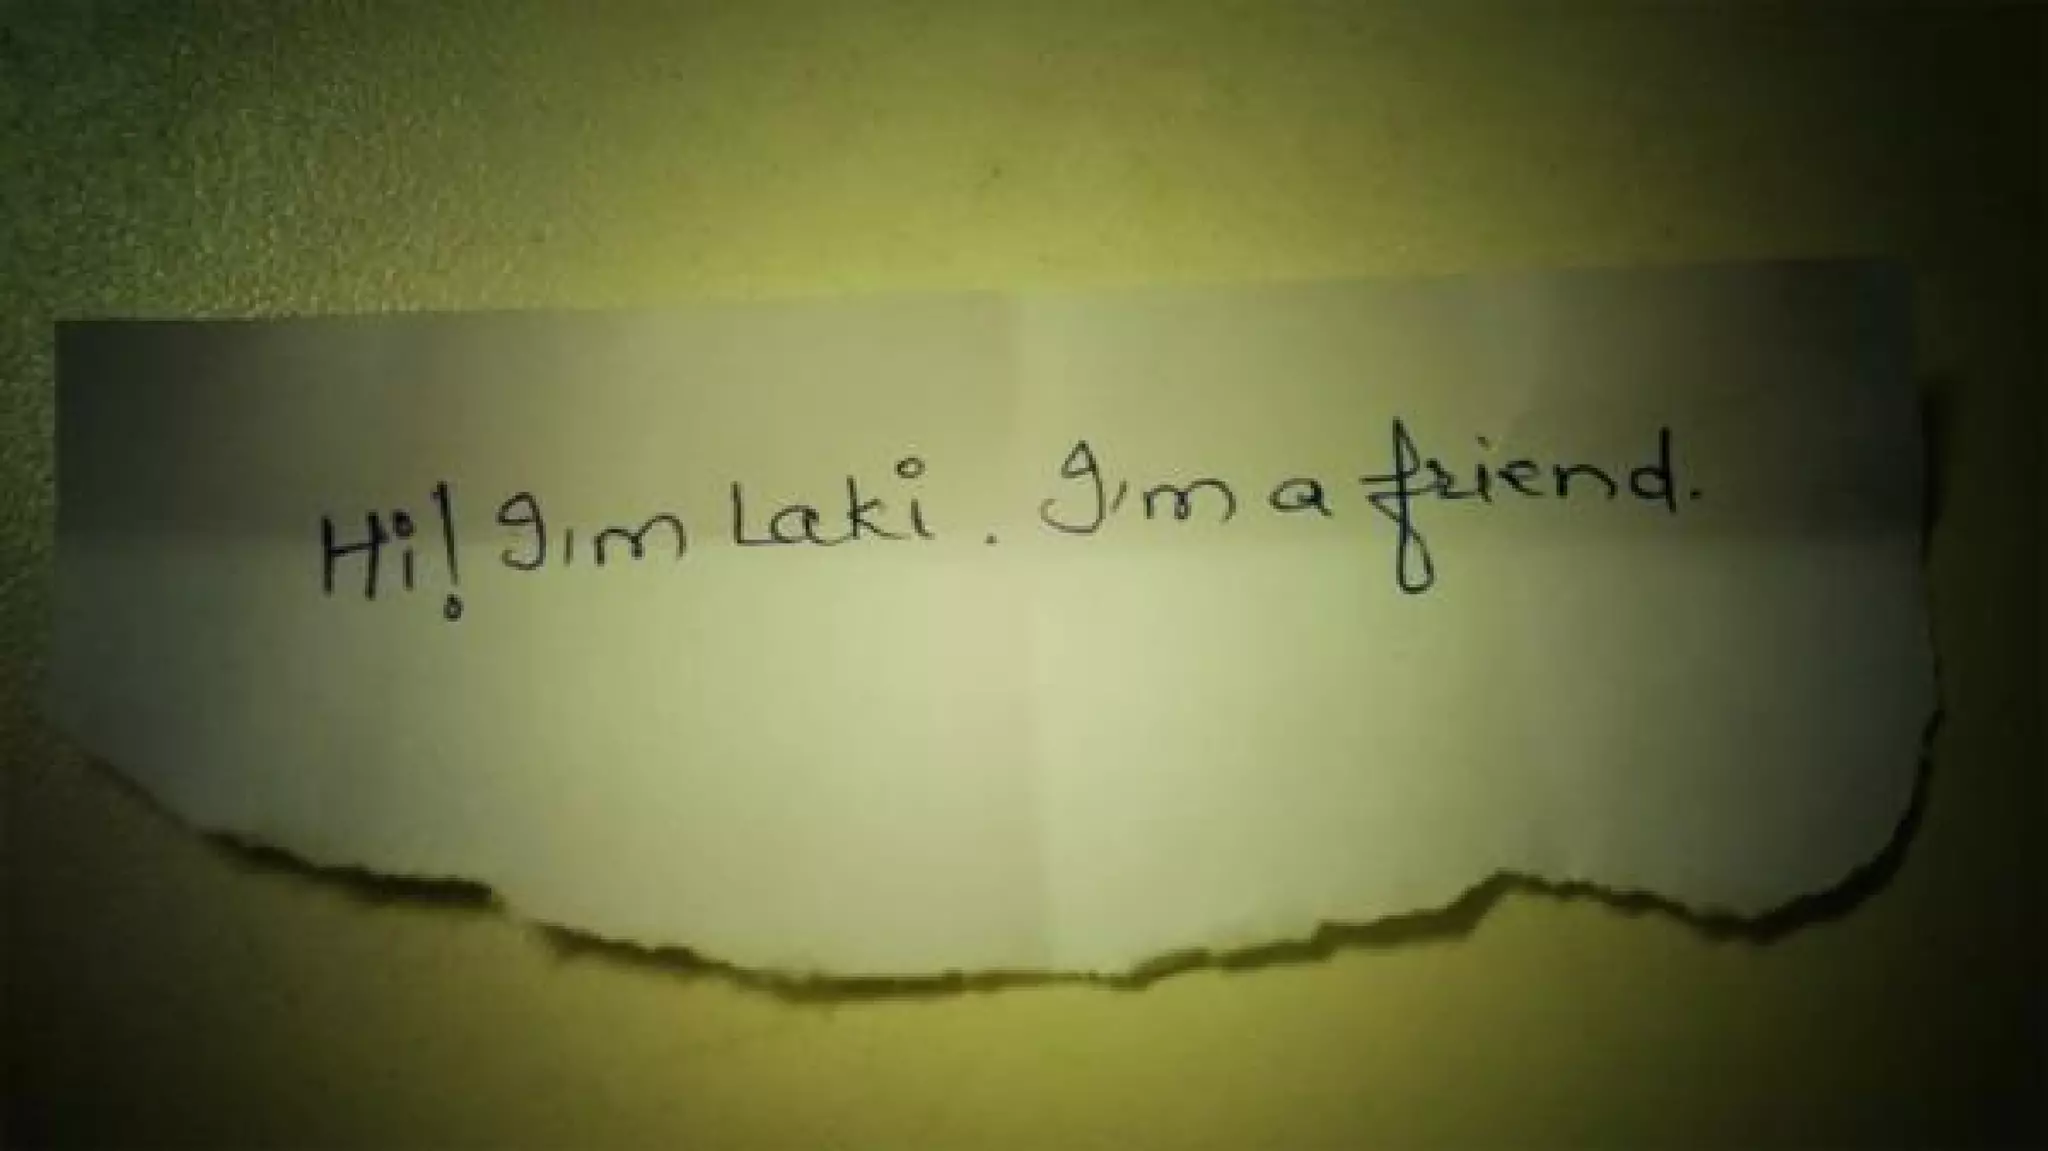 Hi! I'm Laki. I'm a friend.